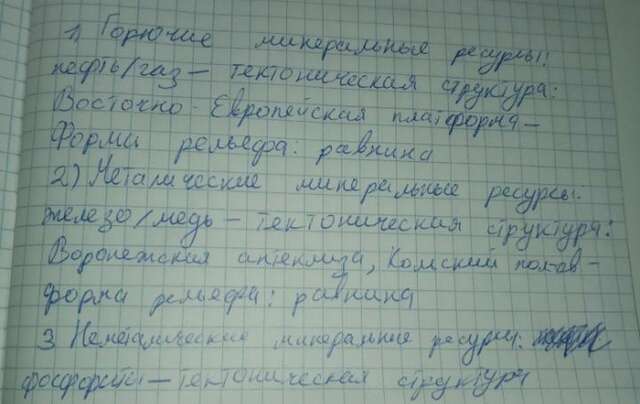 1) Горючие минеральные ресурсы:
нефть/газ – тектоническая структура:
Восточно-Европейская платформа –
Форми рельефа: равнина
2) Металические минеральные ресурсы:
железо/медь – тектоническая структура:
Воронежская антеклиза, Комский пол-ов –
форма рельефа: равнина
3 Неметалические минеральные ресурсы:
фосфориты – тектоническая структура